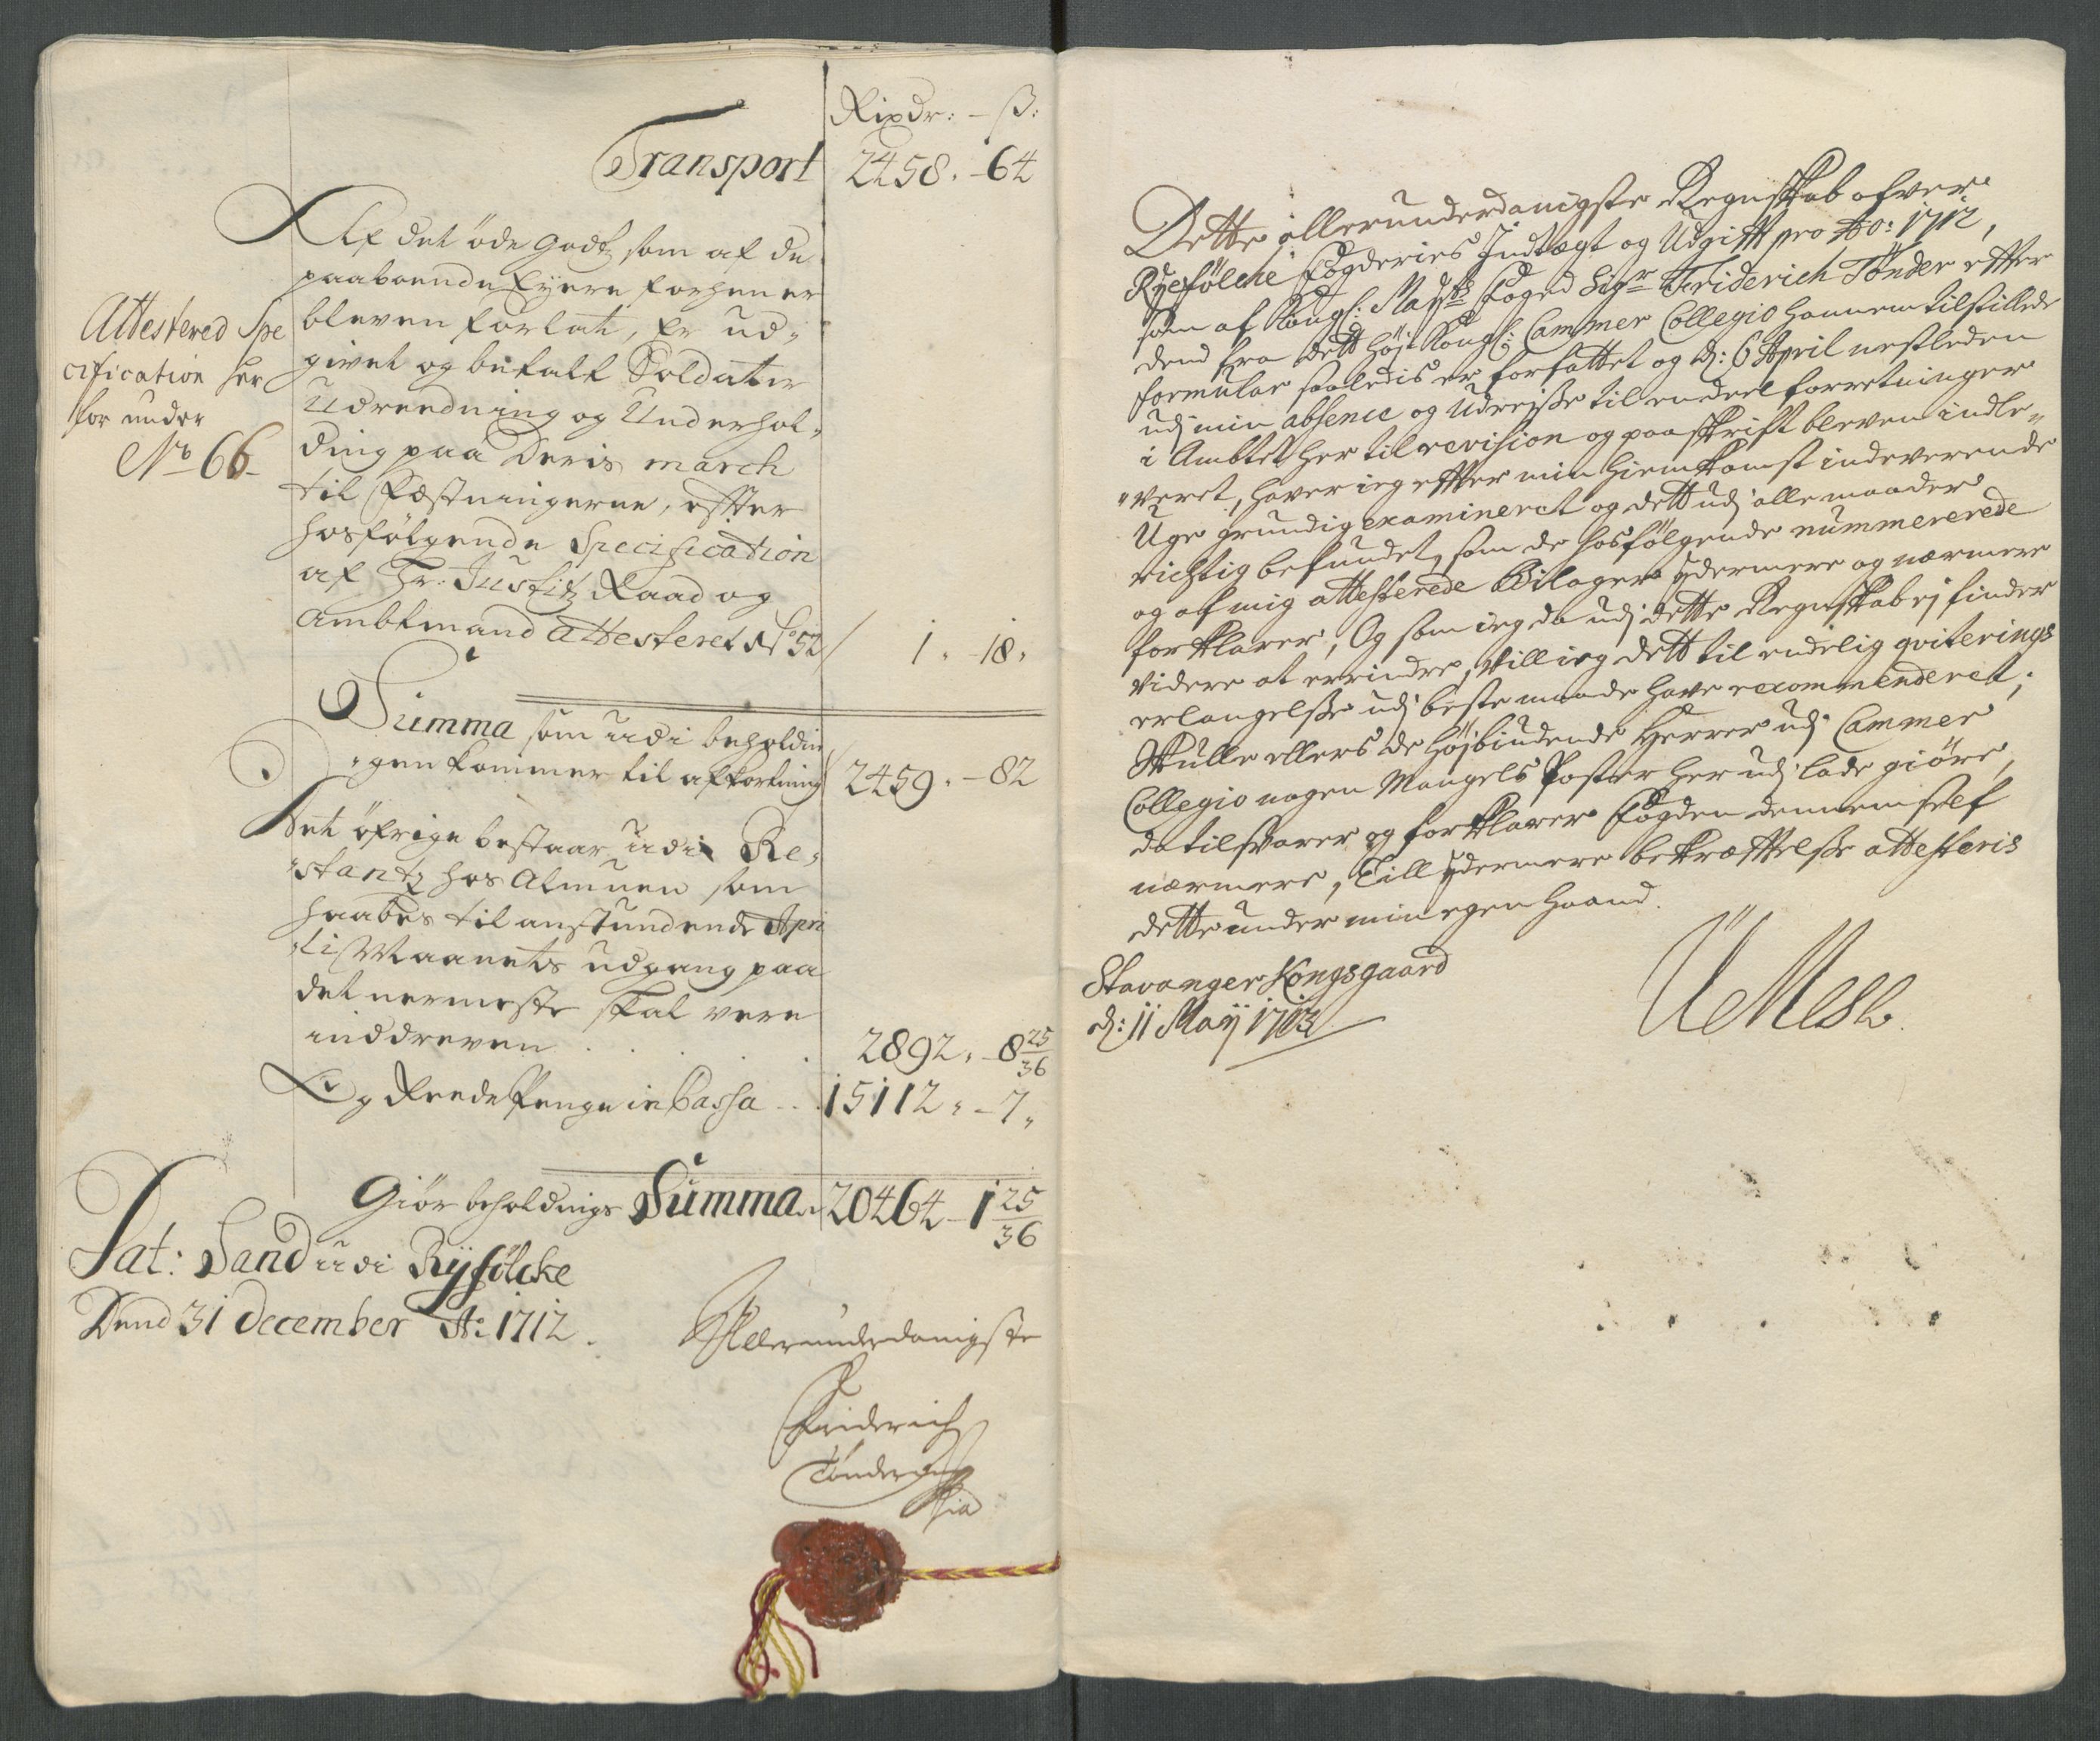 Rixdr: - ß:
Transport 2458. - 64
Af det öde Godtz som af de
paaboende Eyere forhen er
bleven forlat, er ud-
givet og betalt Soldater
Udreedning og Underhol-
ding paa Deris march
til Fæstningerne, efter
hosfölgende Specification
af Hr: Justitz Raad og
Ambtmand attesteret No 52 / 1. - 18.
Attestered Spe
cification her
for under
No 66
Summa som udi beholdin
gen kommer til afkortning 2459. - 82
Det öfrige bestaar udi Re-
stantz hos Almuen som
haabes til anstundende Apri
li Maanets udgang paa
det nermeste skal vere
inddreven . . . . 2892. - 8 25/36
Og Reede Penge in Cassa . . 15112. - 7.
Giör beholdnings Summa. 20464 - 1 25/36
Dat: Sand udi Ryfölcke
Dend 31 december Ao: 1712.
Allerunderdanigste
Friderich
Tönder
Dette allerunderdanigste Regnskab ofver
Ryefölche Fogderies Indtægt og Udgifft pro Ao: 1712,
som af Kongl: Mayts Foged Sigr Friderich Tönder effter
dend fra dett Höj Kongl: Cammer Collegio hannem tilstillede
formular saaledis er forfattet og d: 6 April nestleden
udj min absence og Udrejse til en deel forretninger
i Ambtet her til revision og paaskrift bleven indle-
veret, haver ieg effter min hiemkomst indeverende
Uge grundig examineret og dett udj alle maader
richtig befundet, som de hosfölgende nummererede
og af mig attesterede Bilager ydermere og nærmere
forklarer, Og som ieg da udj dette Regnskab ej finder
videre at erindre, vill ieg dett til endelig qviterings
erlangelse udj beste maade have recommenderet;
Skulle ellers de Höjbiudende Herrer udj Cammer
Collegio nogen Mangels Poster her udj lade giöre,
da tilsvarer og forklarer Fogden dennem self
nærmere, Till ydermere bekræfftelse attesteris
dette under min egen haand.
Stavanger Kongsgaard
d: 11 Maij 1713.